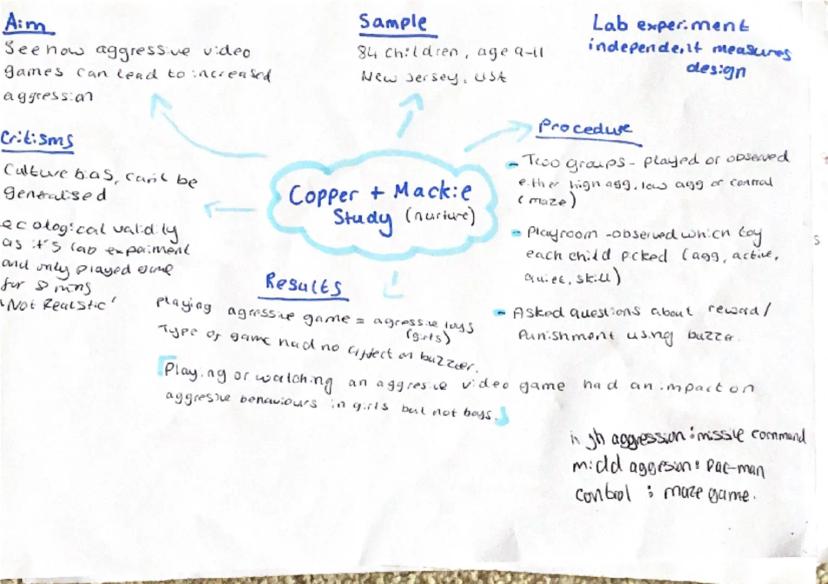 Aim
See how aggressive video
games can lead to increased
aggression
Sample
84 children, age 9-11
New Jersey, USA
Lab experiment
independent measures
design
Critisms
Culture bias, can't be
generalised
ecological validity
as it's lab expairment
and only played game
for 8 mins
'Not Realstic'
Copper + Mackie
Study (nurture)
Procedure
- Two groups - played or observed
either high agg, low agg or control
(maze)
- Playroom - observed which toy
each child pcked (agg, active,
quiet, skill)
- Asked questions about reward/
Punishment using buzzer.
Results
Playing agressive game = agressive toys
(girls)
Type of game had no affect on buzzer.
[Playing or watching an aggresive video game had an impact on
aggresive behaviours in girls but not boys.]
high aggression : missile command
midd aggresion : Pac-man
control : maze game.
s